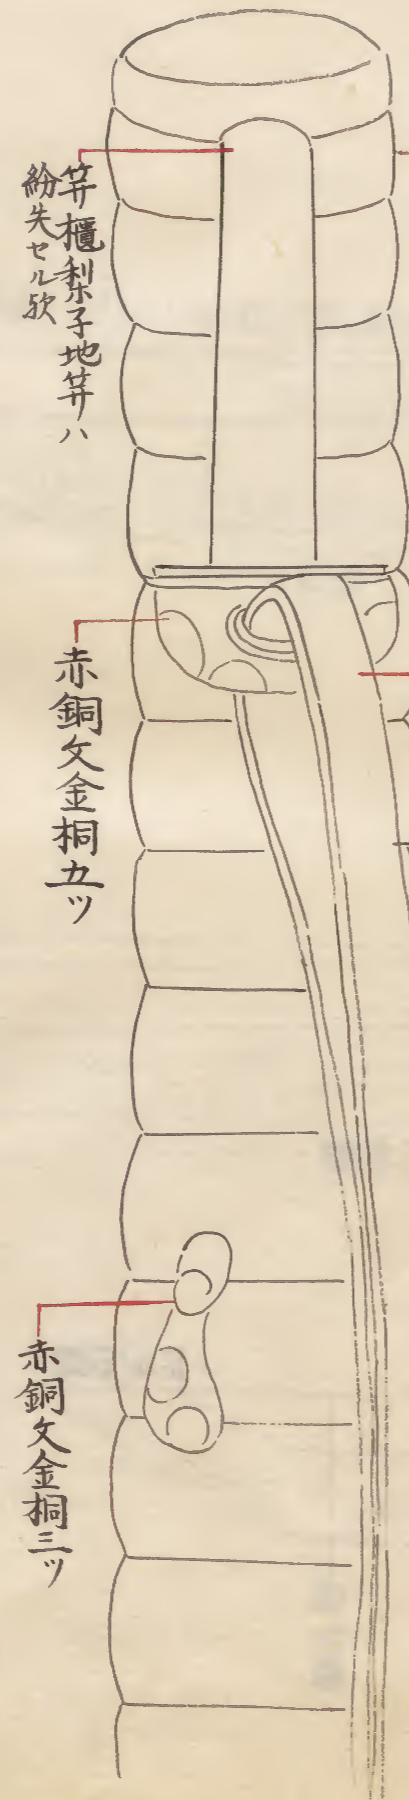 笄櫃梨子地笄ハ
紛失セル欤
赤銅文金桐五ツ
赤銅文金桐三ツ